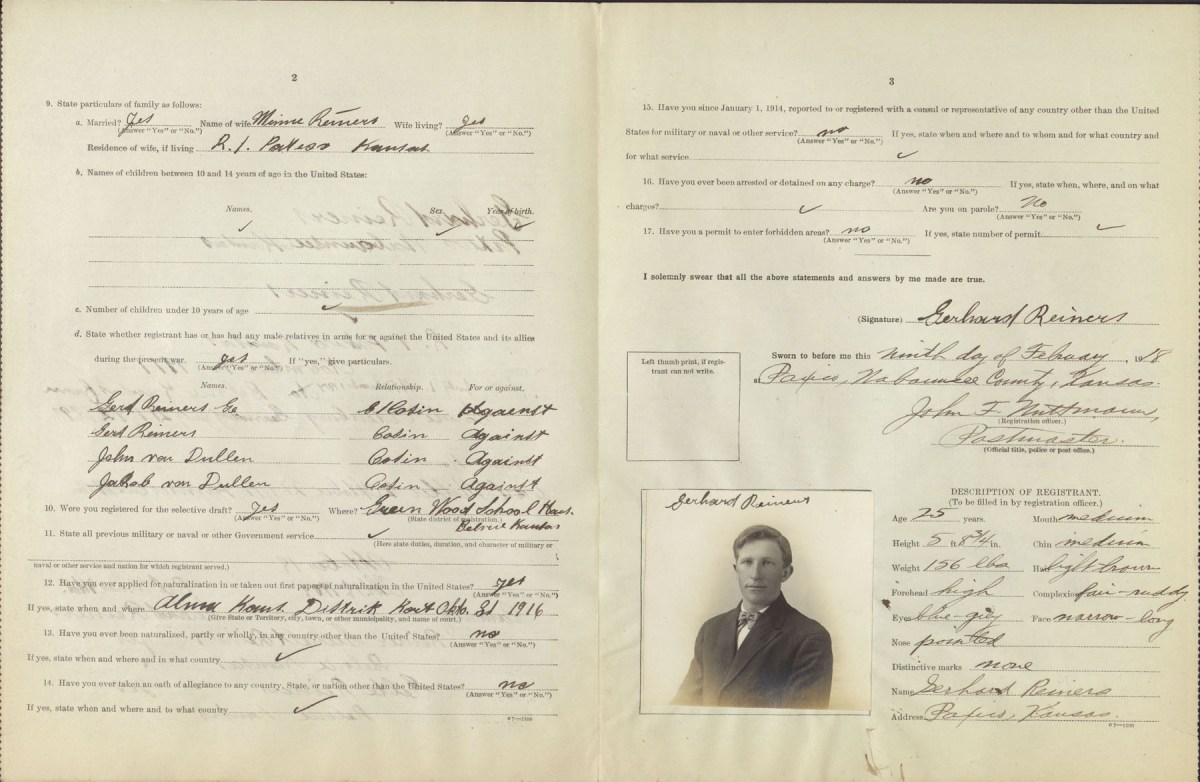 2
9. State particulars of family as follows:
a. Married? Yes Name of wife Minnie Reiners Wife living? yes
(Answer "Yes" or "No.") (Answer "Yes" or "No.")
Residence of wife, if living R. 1. Kansas
b. Names of children between 10 and 14 years of age in the United States:
Names. Sex. Year of birth.
✓ ✓ ✓
c. Number of children under 10 years of age ✓
d. State whether registrant has or has had any male relatives in arms for or against the United States and its allies
during the present war. yes If "yes," give particulars.
(Answer "Yes" or "No.")
Names. Relationship. For or against.
Gerd Reiners Cosin Against
Gerd Reiners Cosin Against
John von Dullen Cosin Against
Jakob von Dullen Cosin Against
10. Were you registered for the selective draft? Yes Where? Green Wood School Kans.
(Answer "Yes" or "No.") (State district of registration.)
Kansas
11. State all previous military or naval or other Government service ✓
(Here state duties, duration, and character of military or
naval or other service and nation for which registrant served.)
12. Have you ever applied for naturalization in or taken out first papers of naturalization in the United States? yes
(Answer "Yes" or "No.")
If yes, state when and where Alma Kans. Distrik Kort 1916
(Give State or Territory, city, town, or other municipality, and name of court.)
13. Have you ever been naturalized, partly or wholly, in any country other than the United States? no
(Answer "Yes" or "No.")
If yes, state when and where and in what country ✓
14. Have you ever taken an oath of allegiance to any country, State, or nation other than the United States? no
(Answer "Yes" or "No.")
If yes, state when and where and to what country ✓
3
15. Have you since January 1, 1914, reported to or registered with a consul or representative of any country other than the United
States for military or naval or other service? no If yes, state when and where and to whom and for what country and
(Answer "Yes" or "No.")
for what service ✓
16. Have you ever been arrested or detained on any charge? no If yes, state when, where, and on what
(Answer "Yes" or "No.")
charges? ✓ Are you on parole? No
(Answer "Yes" or "No.")
17. Have you a permit to enter forbidden areas? no If yes, state number of permit ✓
(Answer "Yes" or "No.")
I solemnly swear that all the above statements and answers by me made are true.
(Signature) Gerhard Reiners
Left thumb print, if registrant can not write.
Sworn to before me this ninth day of February, 1918
at Paxico, Wabaunsee County, Kansas.
John F.
(Registration officer.)
Postmaster.
(Official title, police or post office.)
Gerhard Reiners
DESCRIPTION OF REGISTRANT.
(To be filled in by registration officer.)
Age 25 years. Mouth medium
Height 5 ft 8 3/4 in. Chin medium
Weight 156 lbs Hair light brown
Forehead high Complexion fair-ruddy
Eyes blue-grey Face narrow-long
Nose pointed
Distinctive marks none
Name Gerhard Reiners
Address Paxico, Kansas.